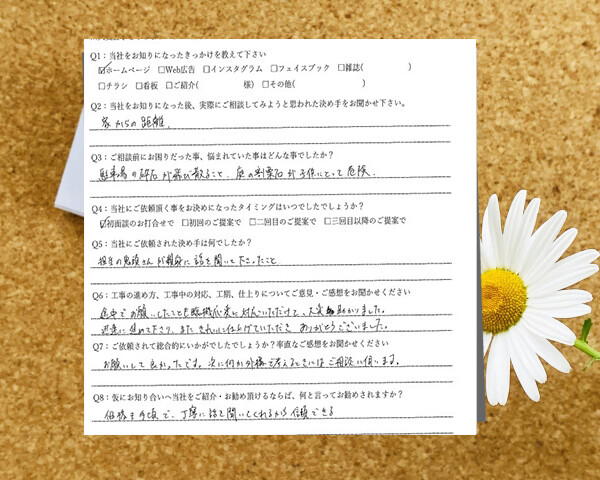 Q1：当社をお知りになったきっかけを教えて下さい
☑ホームページ □Web広告 □インスタグラム □フェイスブック □雑誌( )
□チラシ □看板 □ご紹介( 様) □その他( )
Q2：当社をお知りになった後、実際にご相談してみようと思われた決め手をお聞かせ下さい。
家からの距離。
Q3：ご相談前にお困りだった事、悩まれていた事はどんな事でしたか？
駐車場の砕石が飛び散ること、庭の割栗石が子供にとって危険。
Q4：当社にご依頼頂く事をお決めになったタイミングはいつでしたでしょうか？
☑初面談のお打合せで □初回のご提案で □二回目のご提案で □三回目以降のご提案で
Q5：当社にご依頼された決め手は何でしたか？
担当の鬼頭さんが親身に話を聞いて下さったこと
Q6：工事の進め方、工事中の対応、工期、仕上りについてご意見・ご感想をお聞かせください
途中でお願いしたことも臨機応変に対応いただけて、大変助かりました。
迅速に進めて下さり、またきれいに仕上げていただき ありがとうございました。
Q7：ご依頼されて総合的にいかがでしたでしょうか？率直なご感想をお聞かせください
お願いして良かったです。次に何か外構で考えるときにはご相談に伺います。
Q8：仮にお知り合いへ当社をご紹介・お勧め頂けるならば、何と言ってお勧めされますか？
価格も手頃で、丁寧に話を聞いてくれるから信頼できる